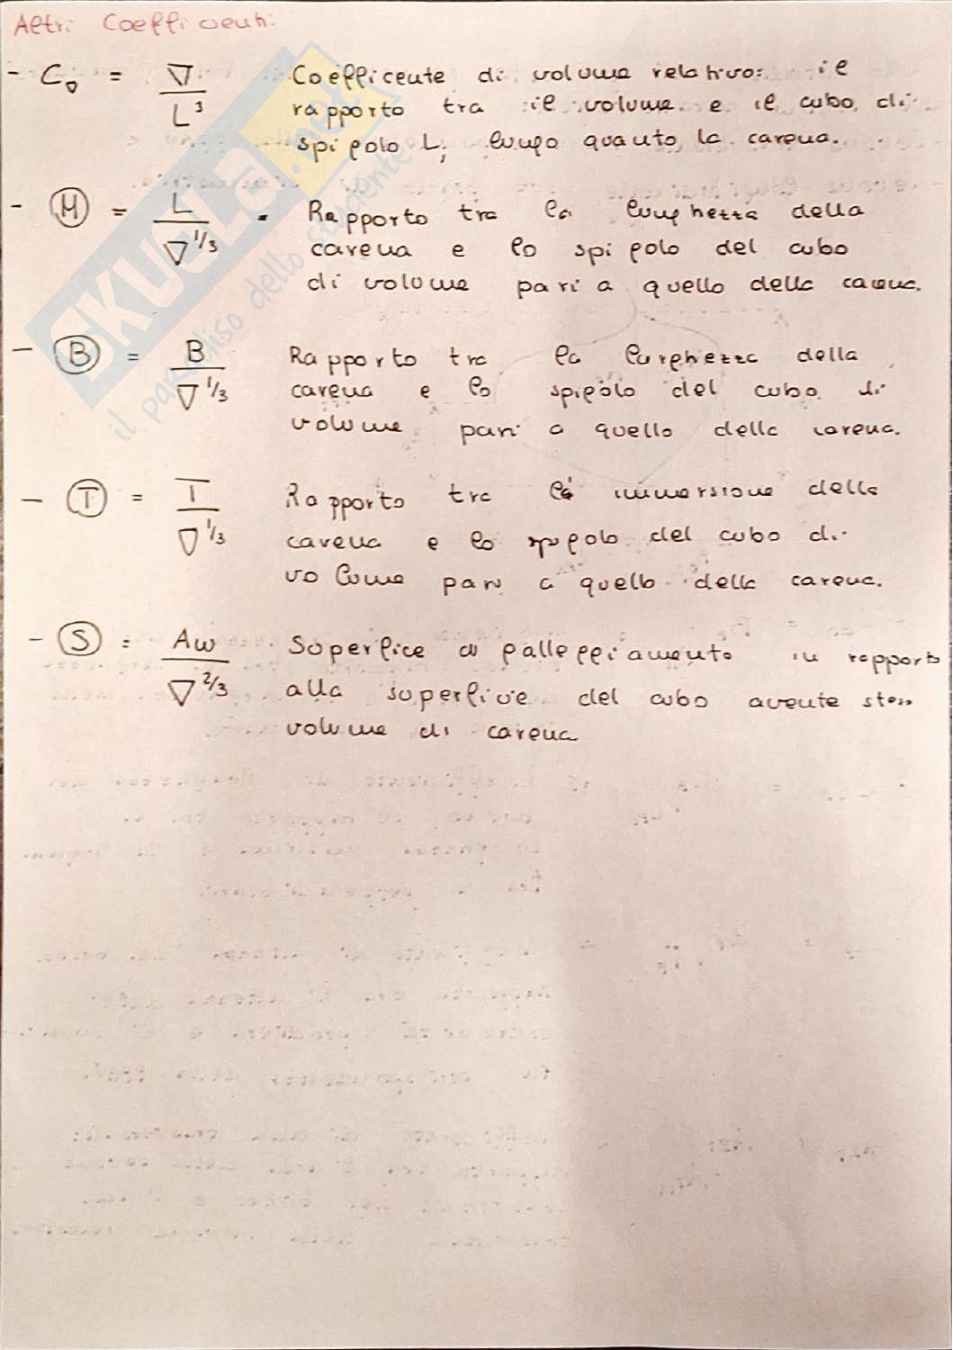 Altri Coefficienti:
- C∇ = ∇ / L³ Coefficeute di volume relativo: il
rapporto tra il volume e il cubo di
spigolo L, lungo quanto la carena.
- Ⓜ = L / ∇^1/3 . Rapporto tra la lunghezza della
carena e lo spigolo del cubo
di volume pari a quello della carena.
- Ⓑ = B / ∇^1/3 Rapporto tra la larghezza della
carena e lo spigolo del cubo di
volume pari a quello della carena.
- Ⓣ = T / ∇^1/3 Rapporto tra la immersione della
carena e lo spigolo del cubo di
volume pari a quello della carena.
- Ⓢ = Aw / ∇^2/3 Superfice di galleggiamento in rapporto
alla superficie del cubo avente stesso
volume di carena
SKUOLA.net
il paradiso dello studente